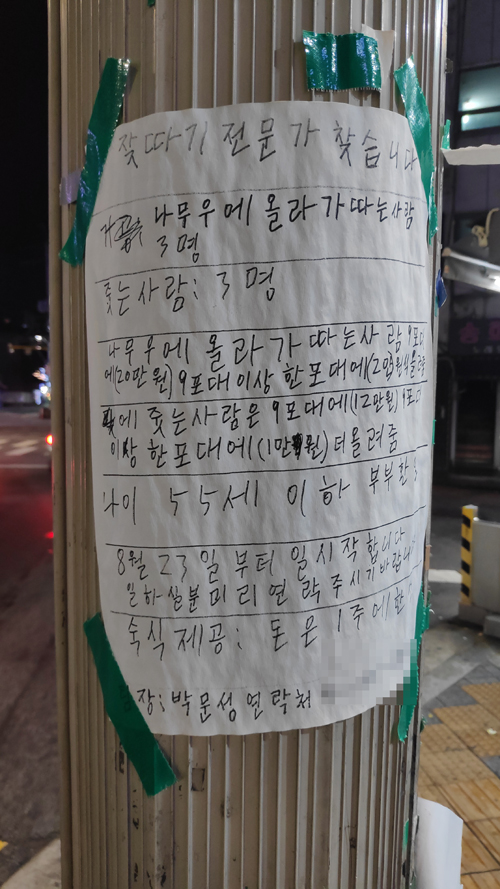 잣따기 전문가 찾습니다
나무우에 올라가 따는사람
3명
줏는사람: 3명
나무우에 올라가 따는사람 9포대
에(20만원) 9포대이상 한포대에(2만원)
밑에 줏는사람은 9포대에(12만원) 9포
이상 한포대에(1만원)더올려줌
나이 55세 이하 부부환
8월 23일부터 일시작합니다
일하실분 미리연락주시기바랍니
숙식제공: 돈은 1주에한
장: 박문성연락처